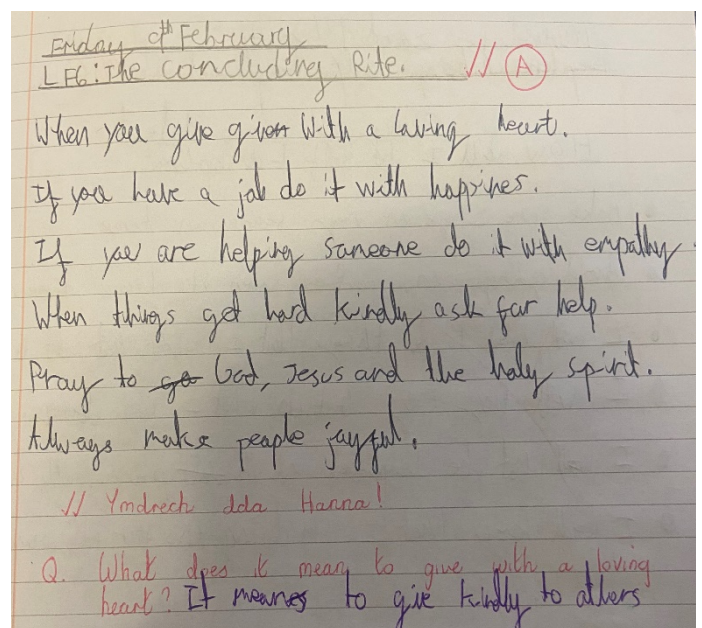 Friday 9th February
LF6: The concluding Rite. // A
When you give given with a loving heart.
If you have a job do it with happines.
If you are helping someone do it with empathy
When things get hard kindly ask for help.
Pray to go God, Jesus and the holy spirit.
Always make people joyful.
// Ymdrech dda Hanna!
Q. What does it mean to give with a loving
heart? It means to give kindly to others